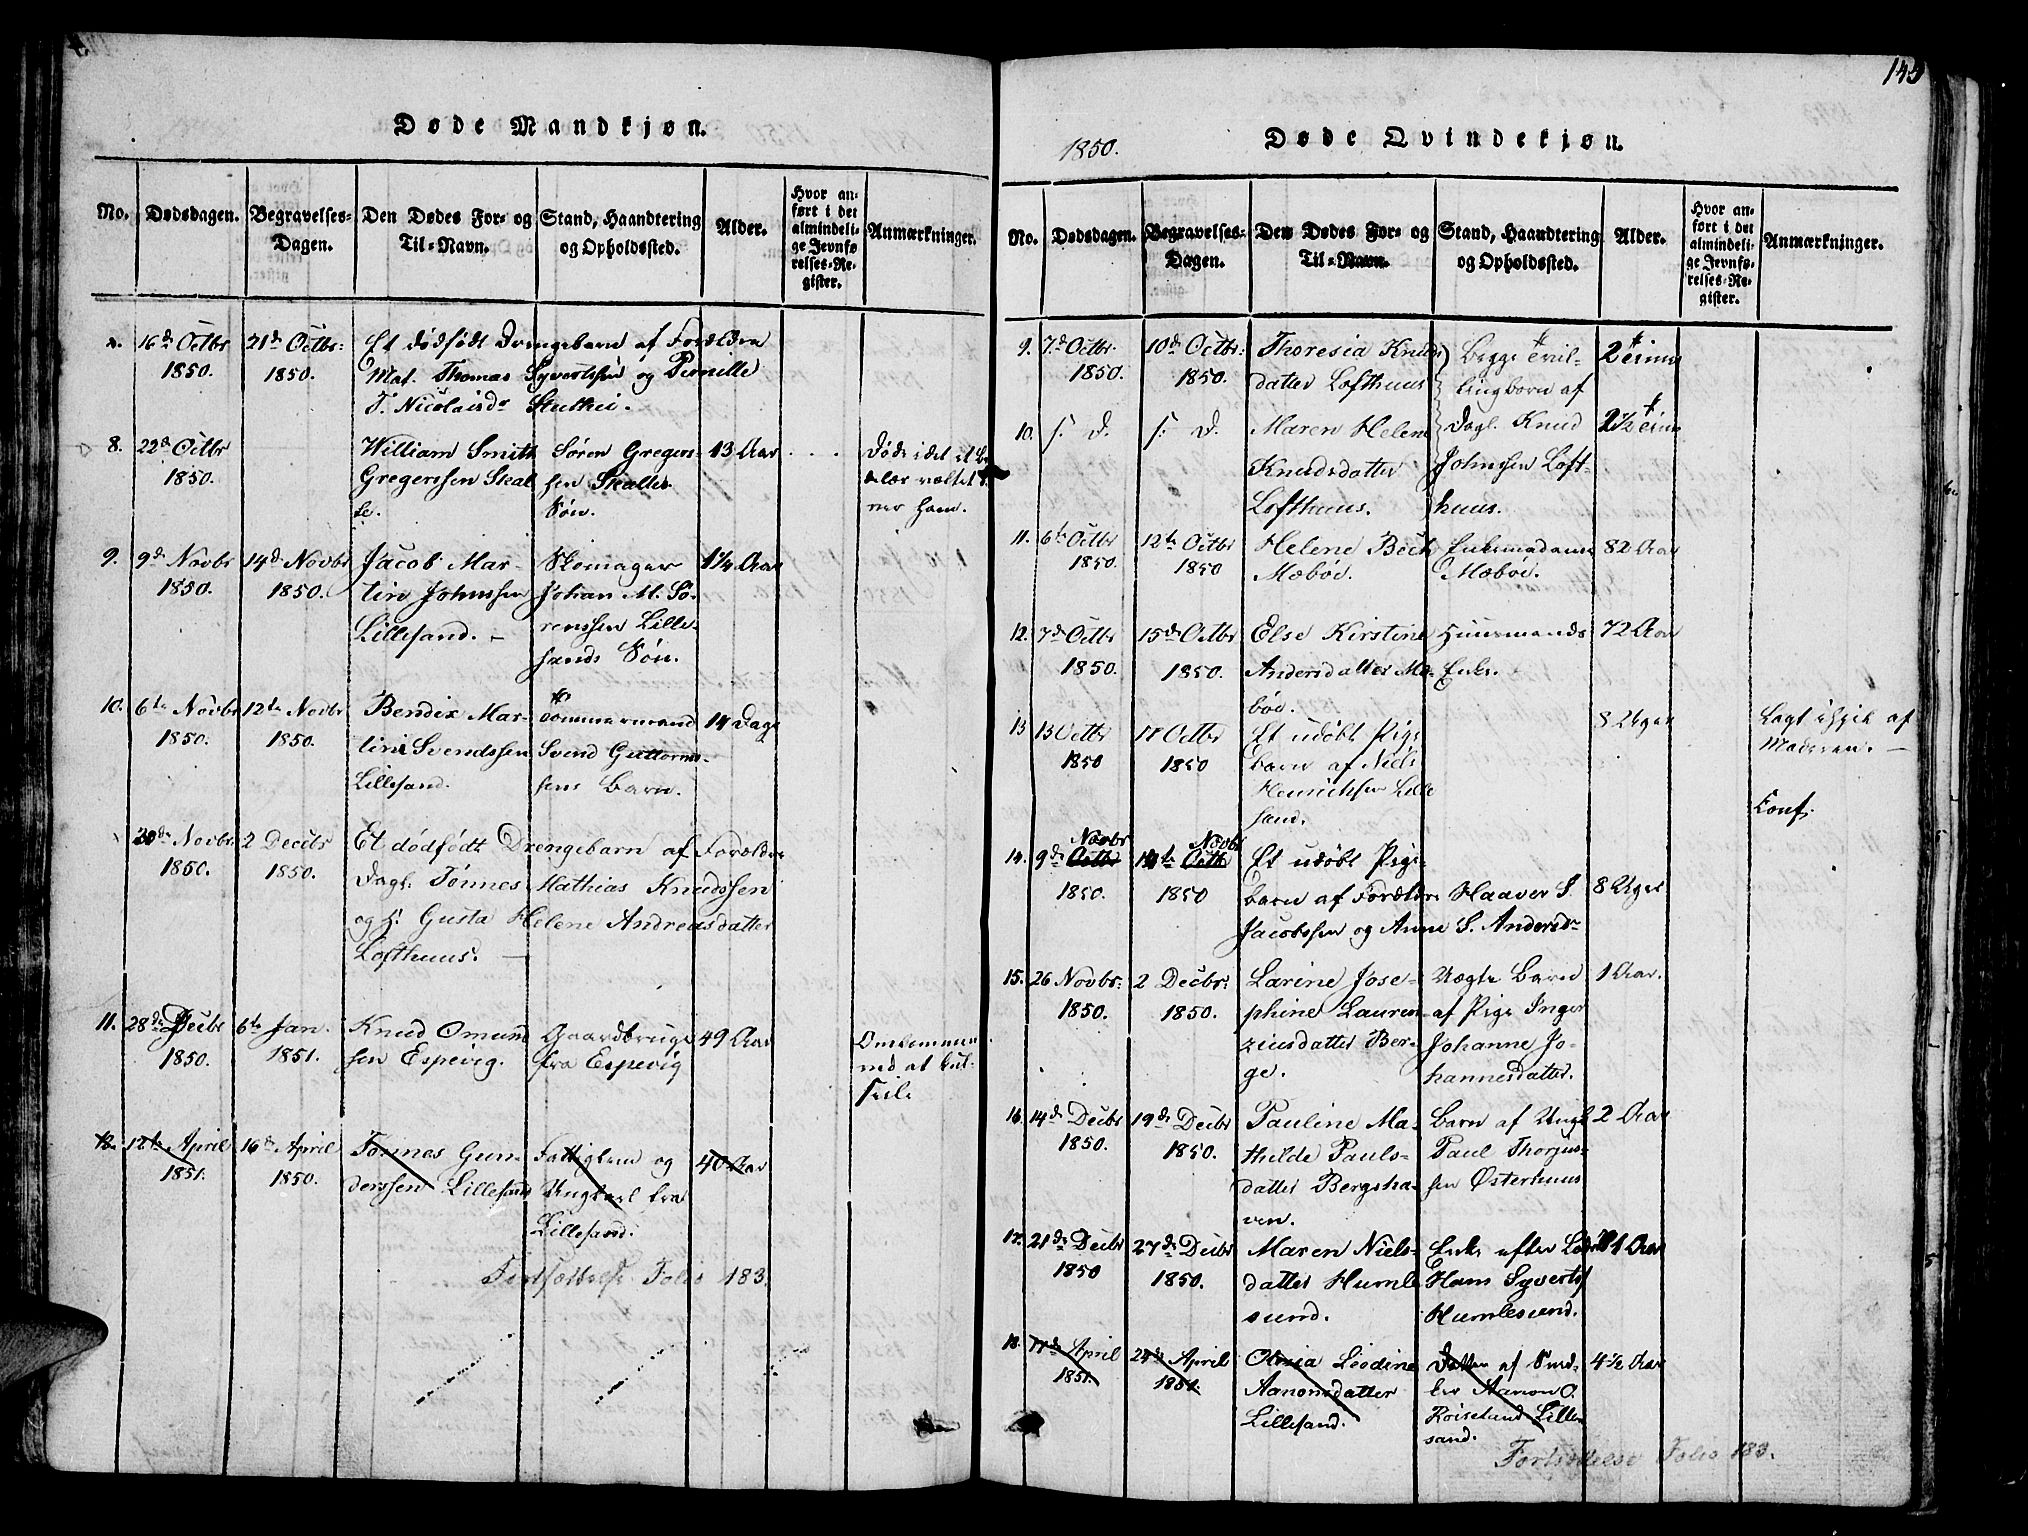 Døde Mandkjøn.
No.
Dødsdagen.
Begravelses-
Dagen.
Den Dødes For- og
Til-Navn.
Stand, Haandtering
og Opholdssted.
Alder.
Hvor an-
ført i det
almindeli-
ge Jevnfø-
relses-Re-
gister.
Anmærkninger.
16de Octbr
1850.
21de Octbr:
1850.
Et dødfødt Drengebarn af Forældre
Mat. Thomas Syvertssen og Pernille
T. Nicolaisdr
8.
22de Octbr
1850.
William Smith
Gregerssen Skal
le.
Søren Gregers-
sen Skalles
Søn.
13 Aar
Døde idet et
væltet o
ver ham.
9.
9de Novbr
1850.
14de Novbr
1850.
Jacob Mar-
tin Johnssen
Lillesand. –
Skomager
Johan M. Sø-
renssen Lille-
sands Søn.
1¼ Aar
10.
6te Novbr
1850.
12te Novbr
1850.
Bendix Mar-
tin Svendssen
Lillesand.
Tømmermand
Svend Guttorms-
sens Barn.
14 Dage
30de Novbr
1850.
2 Decbr
1850.
Et dødfødt Drengebarn af Forældre
Dagl. Tønnes Mathias Knudssen
og H. Gusta Helene Andreasdatter
Lofthuus. –
11.
28de Decbr
1850.
6te Jan.
1851.
Knud Omund
sen Espevig.
Gaardbruger
fra Espevig
49 Aar
Omkommen
ved at kul-
seile
12.
12te April
1851.
16de April
1850.
Tønnes Gun-
derssen Lillesand
Fattiglem og
Ungkarl fra
Lillesand.
40 Aar
Fortsættelse Folio 183.
145
1850.
Døde Qvindekjøn.
No.
Dødsdagen.
Begravelses-
Dagen.
Den Dødes For- og
Til-Navn.
Stand, Haandtering
og Opholdssted.
Alder.
Hvor an-
ført i det
almindeli-
ge Jevnfø-
relses-Re-
gister.
Anmærkninger.
9.
7de Octbr.
1850.
10de Octbr:
1850.
Theresia Knuds
datter Lofthuus
Begge Tvil-
lingbørn af
2 Timer
10.
s. D.
s. D.
Maren Helene
Knudsdatter
Lofthuus.
Dagl. Knud
Johnssen Loft-
huus.
2½ Time
11.
6te Octbr
1850.
12te Octbr
1850
Helene Beck
Mæbøe.
Enkemadame
Mæbøe.
82 Aar
12.
7de Octbr
1850.
15de Octbr
1850.
Else Kirstine
Andersdatter Mæ
bøe.
Huusmands
Enke.
72 Aar
13
13 Octbr
1850
17 Octbr
1850
Et udøbt Pige
barn af Niels
Henrichsen Lille
sand.
8 Uger
Lagt ihjel af
Moderen. –
Conf.
14.
9de Octbr Novbr
1850.
14te Octbr Novbr
1850
Et udøbt Pige
barn af Forældre Haaver S.
Jacobssen og Anne S. Andersdr
8 Uger
15.
26 Novbr:
1850.
2 Decbr:
1850.
Larine Jose-
phine Lauren-
ziusdatter Ber-
ge.
Uægte Barn
af Pige Inger
Johanne Jo-
hannesdatter.
1 Aar.
16.
14de Decbr
1850.
19de Decbr
1850.
Pauline Ma-
thilde Pauls-
datter Bergsha-
ven.
Barn af Ungk
Paul Thorjus-
sen Østerhuus
2 Aar
17.
21de Decbr
1850
27de Decbr
1850.
Maren Niels-
datter Humle
sund.
Enke efter Lods
Hans Syverts
Humlesund.
81 Aar
18.
17de April
1851.
24de April
1851.
Olivia Leodine
Aanonsdatter
Lillesand.
Datter af Sned-
ker Aanon O.
Røiseland Lille-
sand.
4½ Aar
Fortsættelse Folio 183.